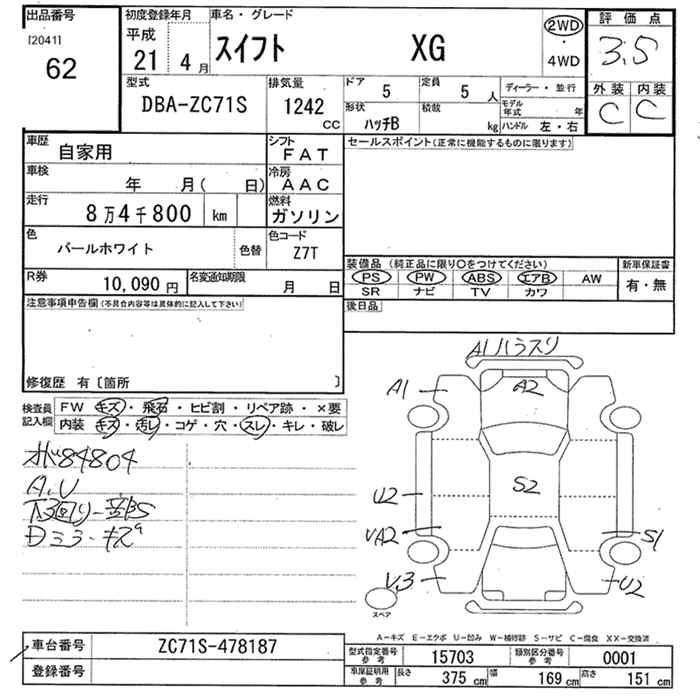 出品番号
[2041]
62
初度登録年月
平成
21 4 月
車名・グレード
スイフト XG
2WD
・
4WD
評価点
3.5
外装 内装
C C
型式
DBA-ZC71S
排気量
1242
CC
ドア
5
定員
5 人
形状
ハッチB
積載
kg
ディーラー・並行
モデル年式 年
ハンドル 左・右
車歴
自家用
シフト
FAT
車検
年 月( 日)
冷房
AAC
走行
8万4千800 km
燃料
ガソリン
色
パールホワイト
色替
色コード
Z7T
R券
10,090 円
名変通知期限
月 日
セールスポイント(正常に機能するものに限ります)
装備品 (純正品に限り○をつけてください)
PS PW ABS エアB AW
SR ナビ TV カワ
新車保証書
有・無
後日品
注意事項申告欄(不具合内容等は具体的に記入して下さい)
修復歴 有〔箇所 〕
検査員
記入欄
FW キズ・飛石・ヒビ割・リペア跡・×要
内装 キズ・汚レ・コゲ・穴・スレ・キレ・破レ
84804
A.U
A1
A1
A2
S2
U2
VA2
V3
S1
U2
スペア
A-キズ E-エクボ U-凹み W-補修跡 S-サビ C-腐食 XX-交換済
車台番号
ZC71S-478187
登録番号
型式指定番号
参考
15703
類別区分番号
参考
0001
車庫証明用
参考
長さ 375 cm
幅 169 cm
高さ 151 cm